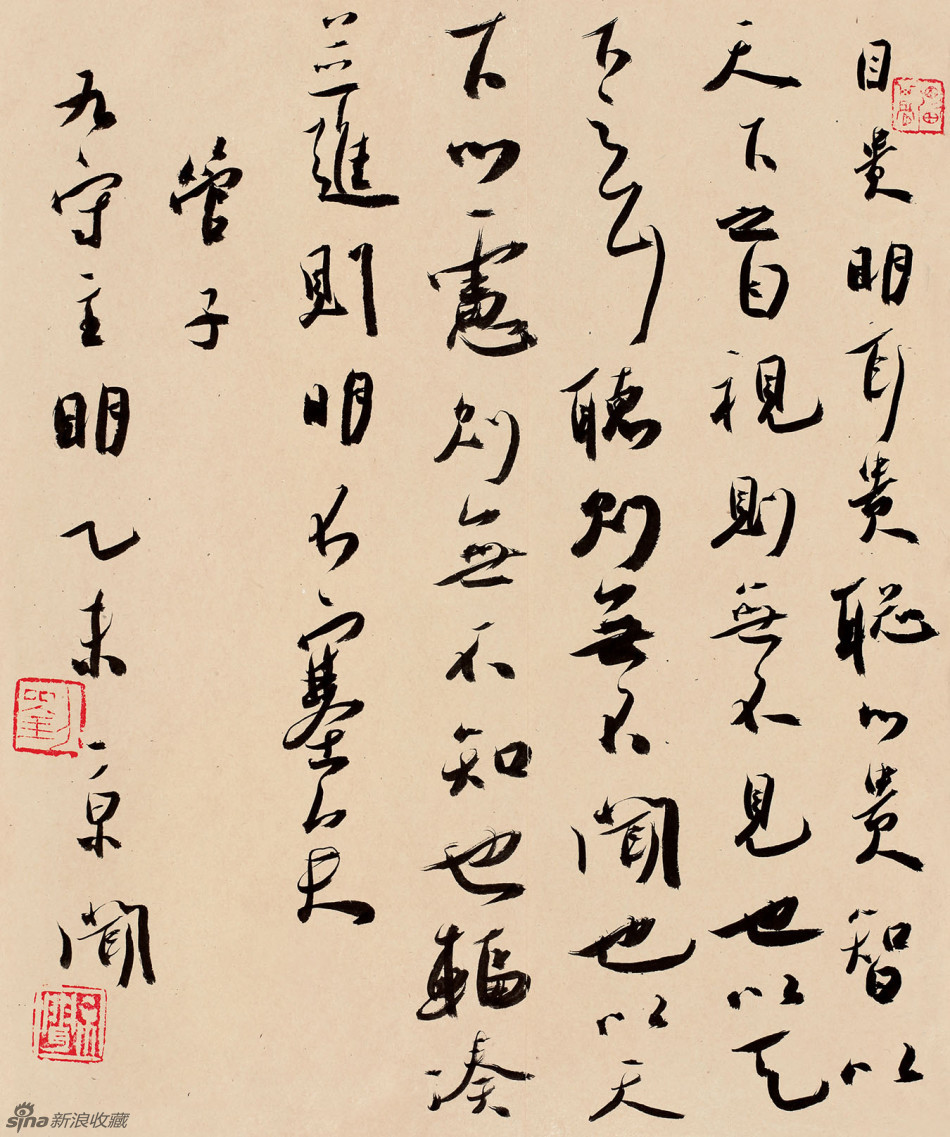 目貴明耳貴聰心貴智以
天下之目視則無不見也以天
下之耳聽則無不聞也以天
下心慮則無不知也輻湊
並進則明不塞矣
管子
九守主明乙未京聞
劉
京聞
sina新浪收藏